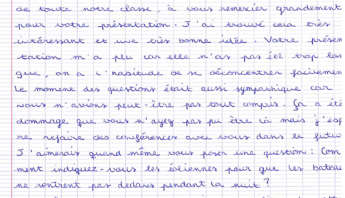 de toute notre classe, à vous remercier grandement
pour votre présentation. J'ai trouvé cela très
intéressant et une très bonne idée. Votre présen
tation m'a plu car elle n'as pas été trop lon
gue, on a l'habitude de se déconcentrer facilement
Le moment des questions était aussi sympathique car
nous n'avions peut-être pas tout compris. Ça a été
dommage que vous n'ayez pas pu être là mais j'esp
re refaire des conférences avec vous dans le futur
J'aimerais quand même vous poser une question : Com
ment indiquez-vous les éoliennes pour que les bateau
ne rentrent pas dedans pendant la nuit ?